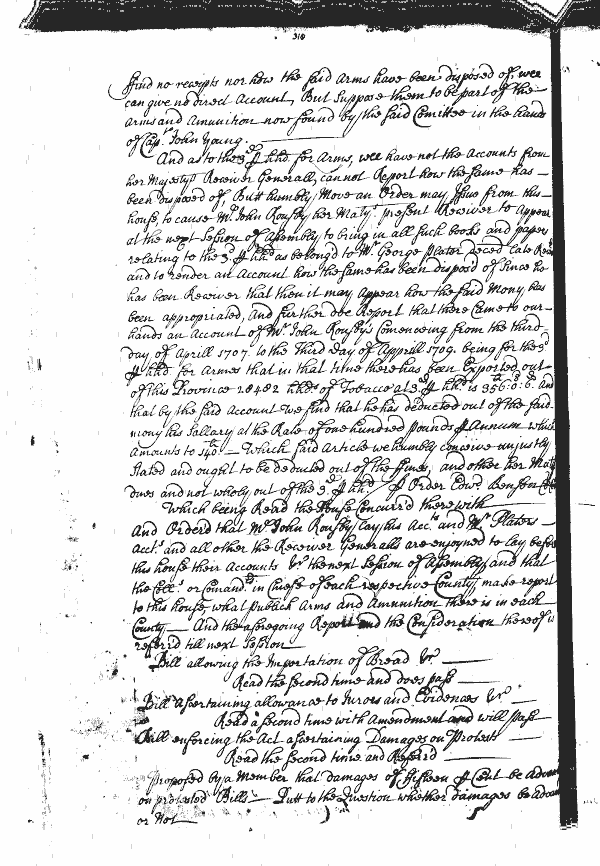 310
find no receipts nor how the said Arms have been disposed of, wee
can give no direct Account, But Suppose them to be part of the
arms and Amunition now found by the said Comittee in the hands
of Cap.t John Young.
And as to the 3.d ⅌ hhd. for Arms, wee have not the Accounts from
her Majestys Receiver Generall, cannot Report how the same has
been disposed of, Butt humbly Move an Order may Issue from this
house, to cause Mr. John Rousby her Matys. present Receiver to Appear
at the next Session of Assembly to bring in all such books and papers
relating to the 3.d ⅌ hhd. as belong'd to Mr. George Plater deced late
and to render an Account how the same has been disposd of Since he
has been Receiver that then it may Appear how the said Mony has
been appropriated, And further doe Report that there Came to our
hands an Account of Mr. John Rousby's Comenceing from the third
day of Aprill 1707. to the Third day of Apprill 1709. being for the 3.d
⅌ hhd. for Armes that in that time there has been Exported out
of this Province 28482 hhds. of Tobacco at 3.d ⅌ hhd. is 356:0:6. And
that by the said Account we find that he has deducted out of the said
mony his Sallary at the Rate of one hundred pounds ⅌ Annum which
amounts to £40 — Which said Article we humbly conceive unjustly
Stated and ought to be deducted out of the fines, and other her Matys
dues and not wholy out of the 3.d ⅌ hhd. ⅌ Order Edwd.
Which being Read the House Concurr'd there with
And Orderd that Mr. John Rousby lay his Acc.ts and Mr. Platers
Acct. and all other the Receiver Generalls are enjoyned to lay before
this house their Accounts &c. the next Session of Assembly, and that
the Coll.o or Comand.r in Chiefe of each respective County, make report
to this house, what publick Arms and Amunition there is in each
County And the aforegoing Report and the Consideration thereof is
referr'd till next Session
Bill allowing the Importation of Bread &c.
Read the Second time and does pass
Bill Ascertaining allowance to Jurors and Evidences &c.
Read a Second time with Amendment and will pass
Bill enforcing the Act ascertaining Damages on Protests
Read the Second time and Referrd
Proposed by a Member that damages of fifteen ⅌ Cent be
on protested Bills Putt to the Question whether damages be
or Not